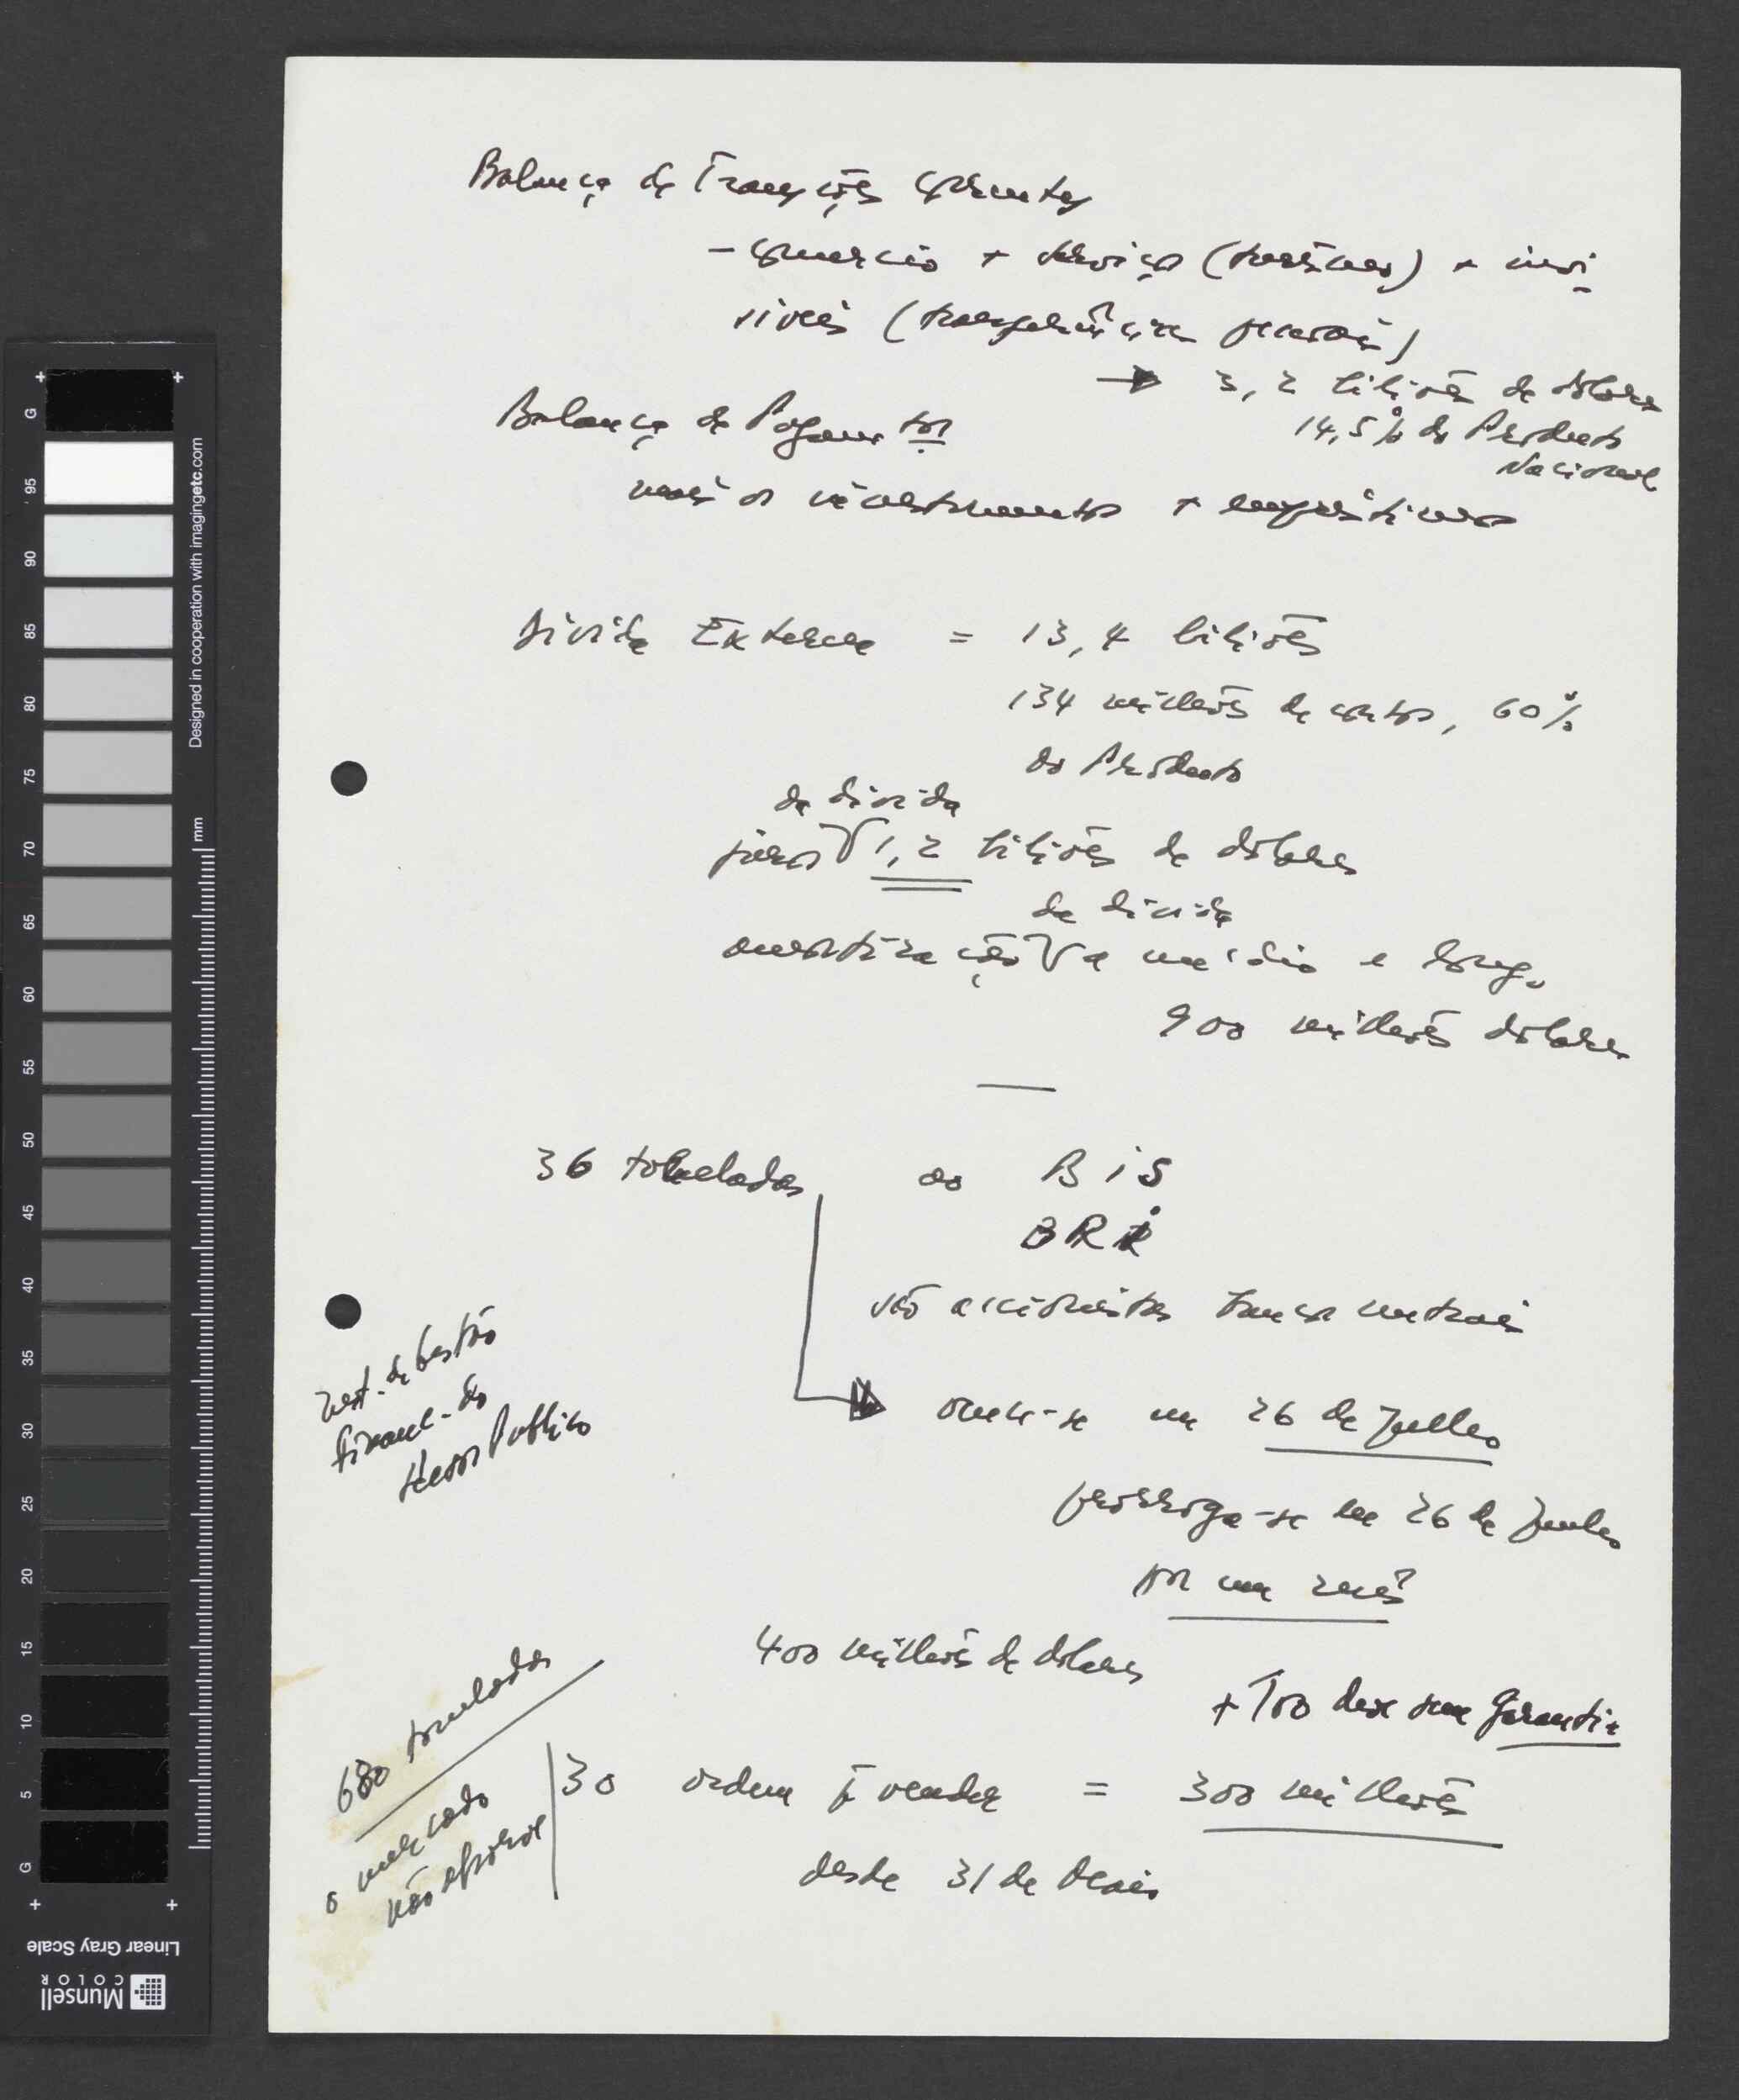 Balança de Transações Correntes
- comércio + serviços (turismo) + invi
síveis (transferências pessoais)
→ 3,2 biliões de dólares
14,5% do Producto
Nacional
Balança de Pagamentos
mais os investimentos + empréstimos
Dívida Externa = 13,4 biliões
134 milhões de contos, 60%
do Producto
da divida
juros V 1,2 biliões de dólares
da divida
amortização V a médio e longo
900 milhões dólares
36 toneladas ao BiS
BRi
são accionistas bancos centrais
vence-se em 26 de Julho
prorroga-se em 26 de Junho
por um mês
400 milhões de dólares
+ 100 sem garantia
30 ordem p vender = 300 milhões
desde 31 de Maio
de Gestão
financ. do
Sector Publico
680 toneladas
o mercado
não absorve
Linear Gray Scale
Munsell
COLOR
Designed in cooperation with imagingetc.com
mm
G 95 90 85 80 75 70 65 60 55 50 45 40 35 30 25 20 15 10 5 G